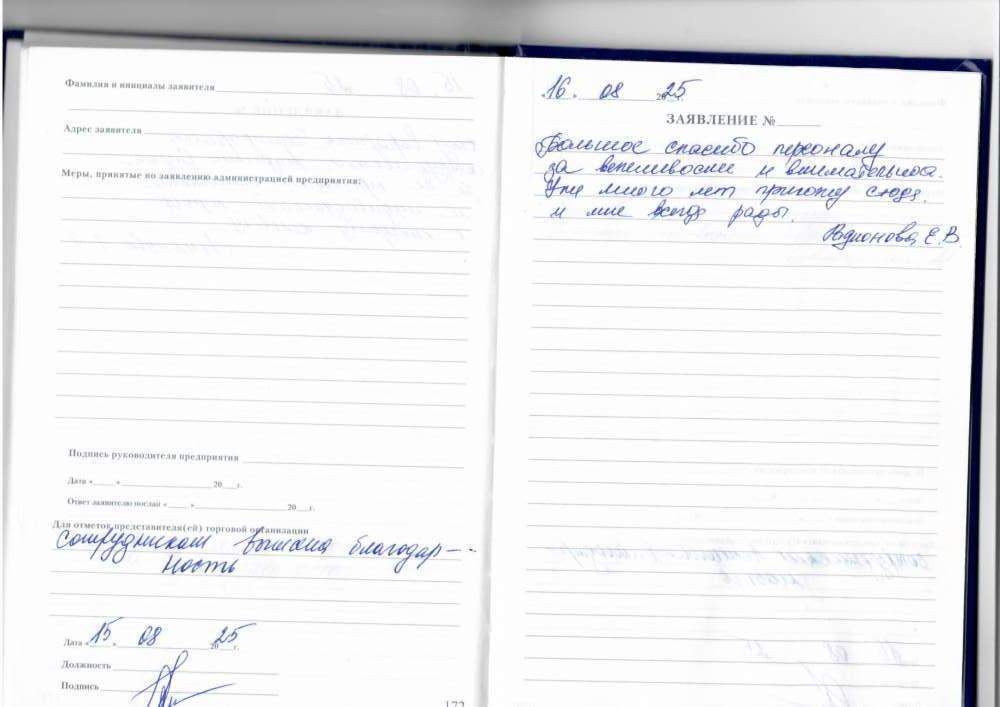 Фамилия и инициалы заявителя
Адрес заявителя
Меры, принятые по заявлению администрацией предприятия:
Подпись руководителя предприятия
Дата « » 20 г.
Ответ заявителю послан « » 20 г.
Для отметок представителя(ей) торговой организации
Сотрудникам вынесена благодар-
ность
Дата «15» 08 2025 г.
Должность
Подпись
172
16. 08 2025 г.
ЗАЯВЛЕНИЕ №
Большое спасибо персоналу
за и
Уже много лет прихожу сюда.
и мне всегда рады.
Родионова Е.В.